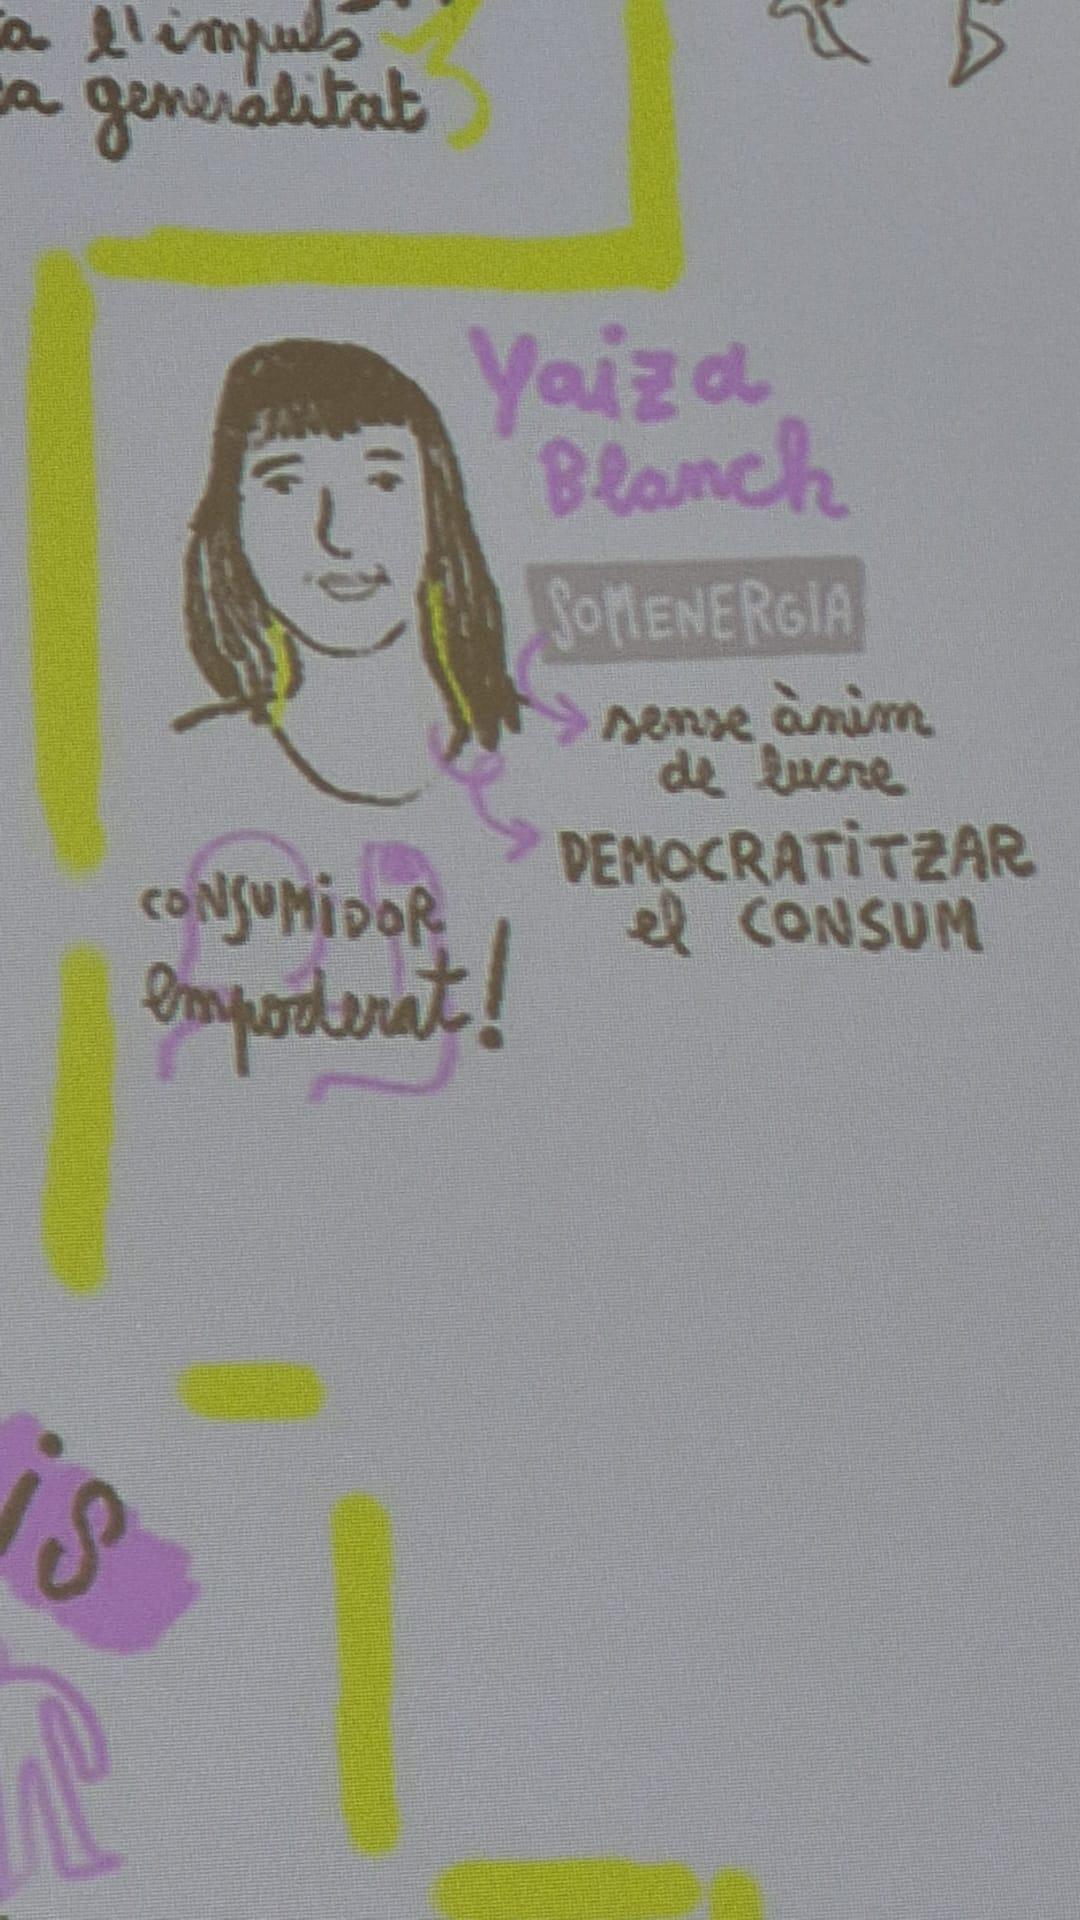 a l'impuls
a generalitat
Yaiza
Blanch
SOMENERGIA
sense ànim
de lucre
DEMOCRATiTZAR
el CONSUM
CONSUMiDOR
empoderat!
is